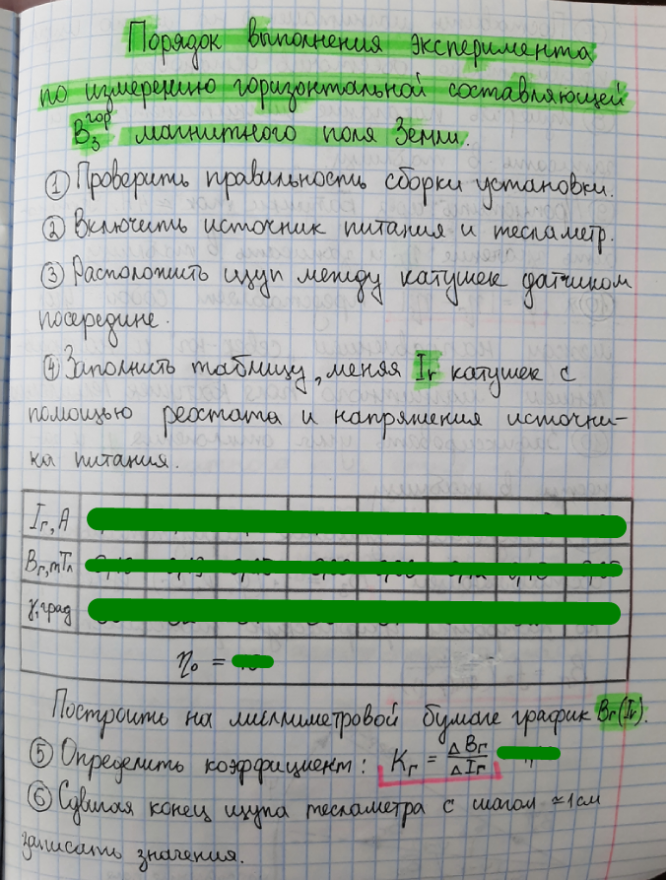 Порядок выполнения эксперимента
по измерению горизонтальной составляющей
B₃ᵍᵒᵖ магнитного поля Земли.
① Проверить правильность сборки установки.
② Включить источник питания и тесламетр.
③ Расположить щуп между катушек датчиком
посередине.
④ Заполнить таблицу, меняя Iг катушек с
помощью реостата и напряжения источни-
ка питания.
Iг, А
Bг, mТл
γ, град
η₀ =
Построить на миллиметровой бумаге график Bг(Iг).
⑤ Определить коэффициент: Kг = ΔBг/ΔIг
⑥ Сдвигая конец щупа тесламетра с шагом ≈1см
записать значения.